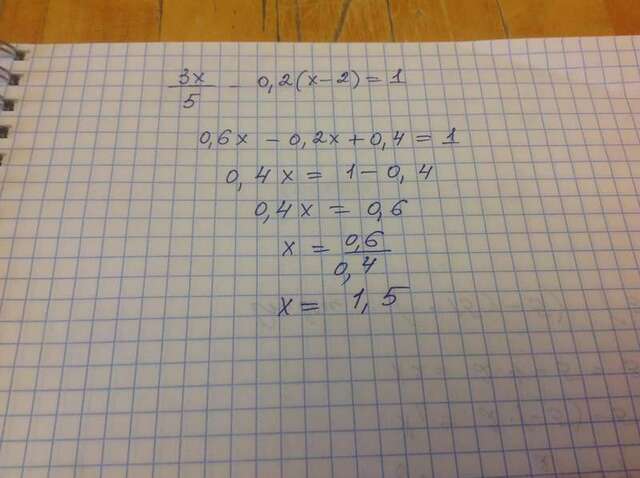 3x/5 - 0,2(x-2) = 1
0,6x - 0,2x + 0,4 = 1
0,4x = 1 - 0,4
0,4x = 0,6
x = 0,6/0,4
x = 1,5